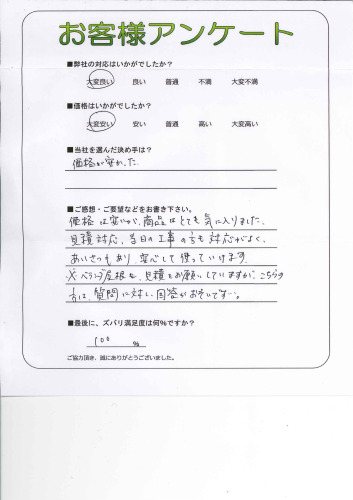 お客様アンケート
■弊社の対応はいかがでしたか?
大変良い 良い 普通 不満 大変不満
■価格はいかがでしたか?
大変安い 安い 普通 高い 大変高い
■当社を選んだ決め手は?
価格が安かった
■ご感想・ご要望などをお書き下さい。
価格は安いが、商品はとても気に入りました。
見積対応、当日の工事の方も対応がよく、
あいさつもあり、安心して使っていけます。
※ベランダ屋根も、見積をお願いしていますが、こちらの
方は、質問に対し、回答がおそいです…。
■最後に、ズバリ満足度は何%ですか?
100 %
ご協力頂き、誠にありがとうございました。